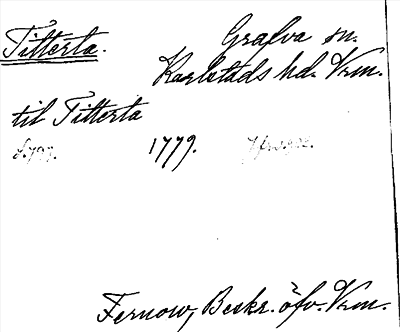 Titterta.
Grafva sn.
Karlstads hd. Vrm.
til Titterta
s. 797. 1779.
Fernow, Beskr. öfv. Vrm.